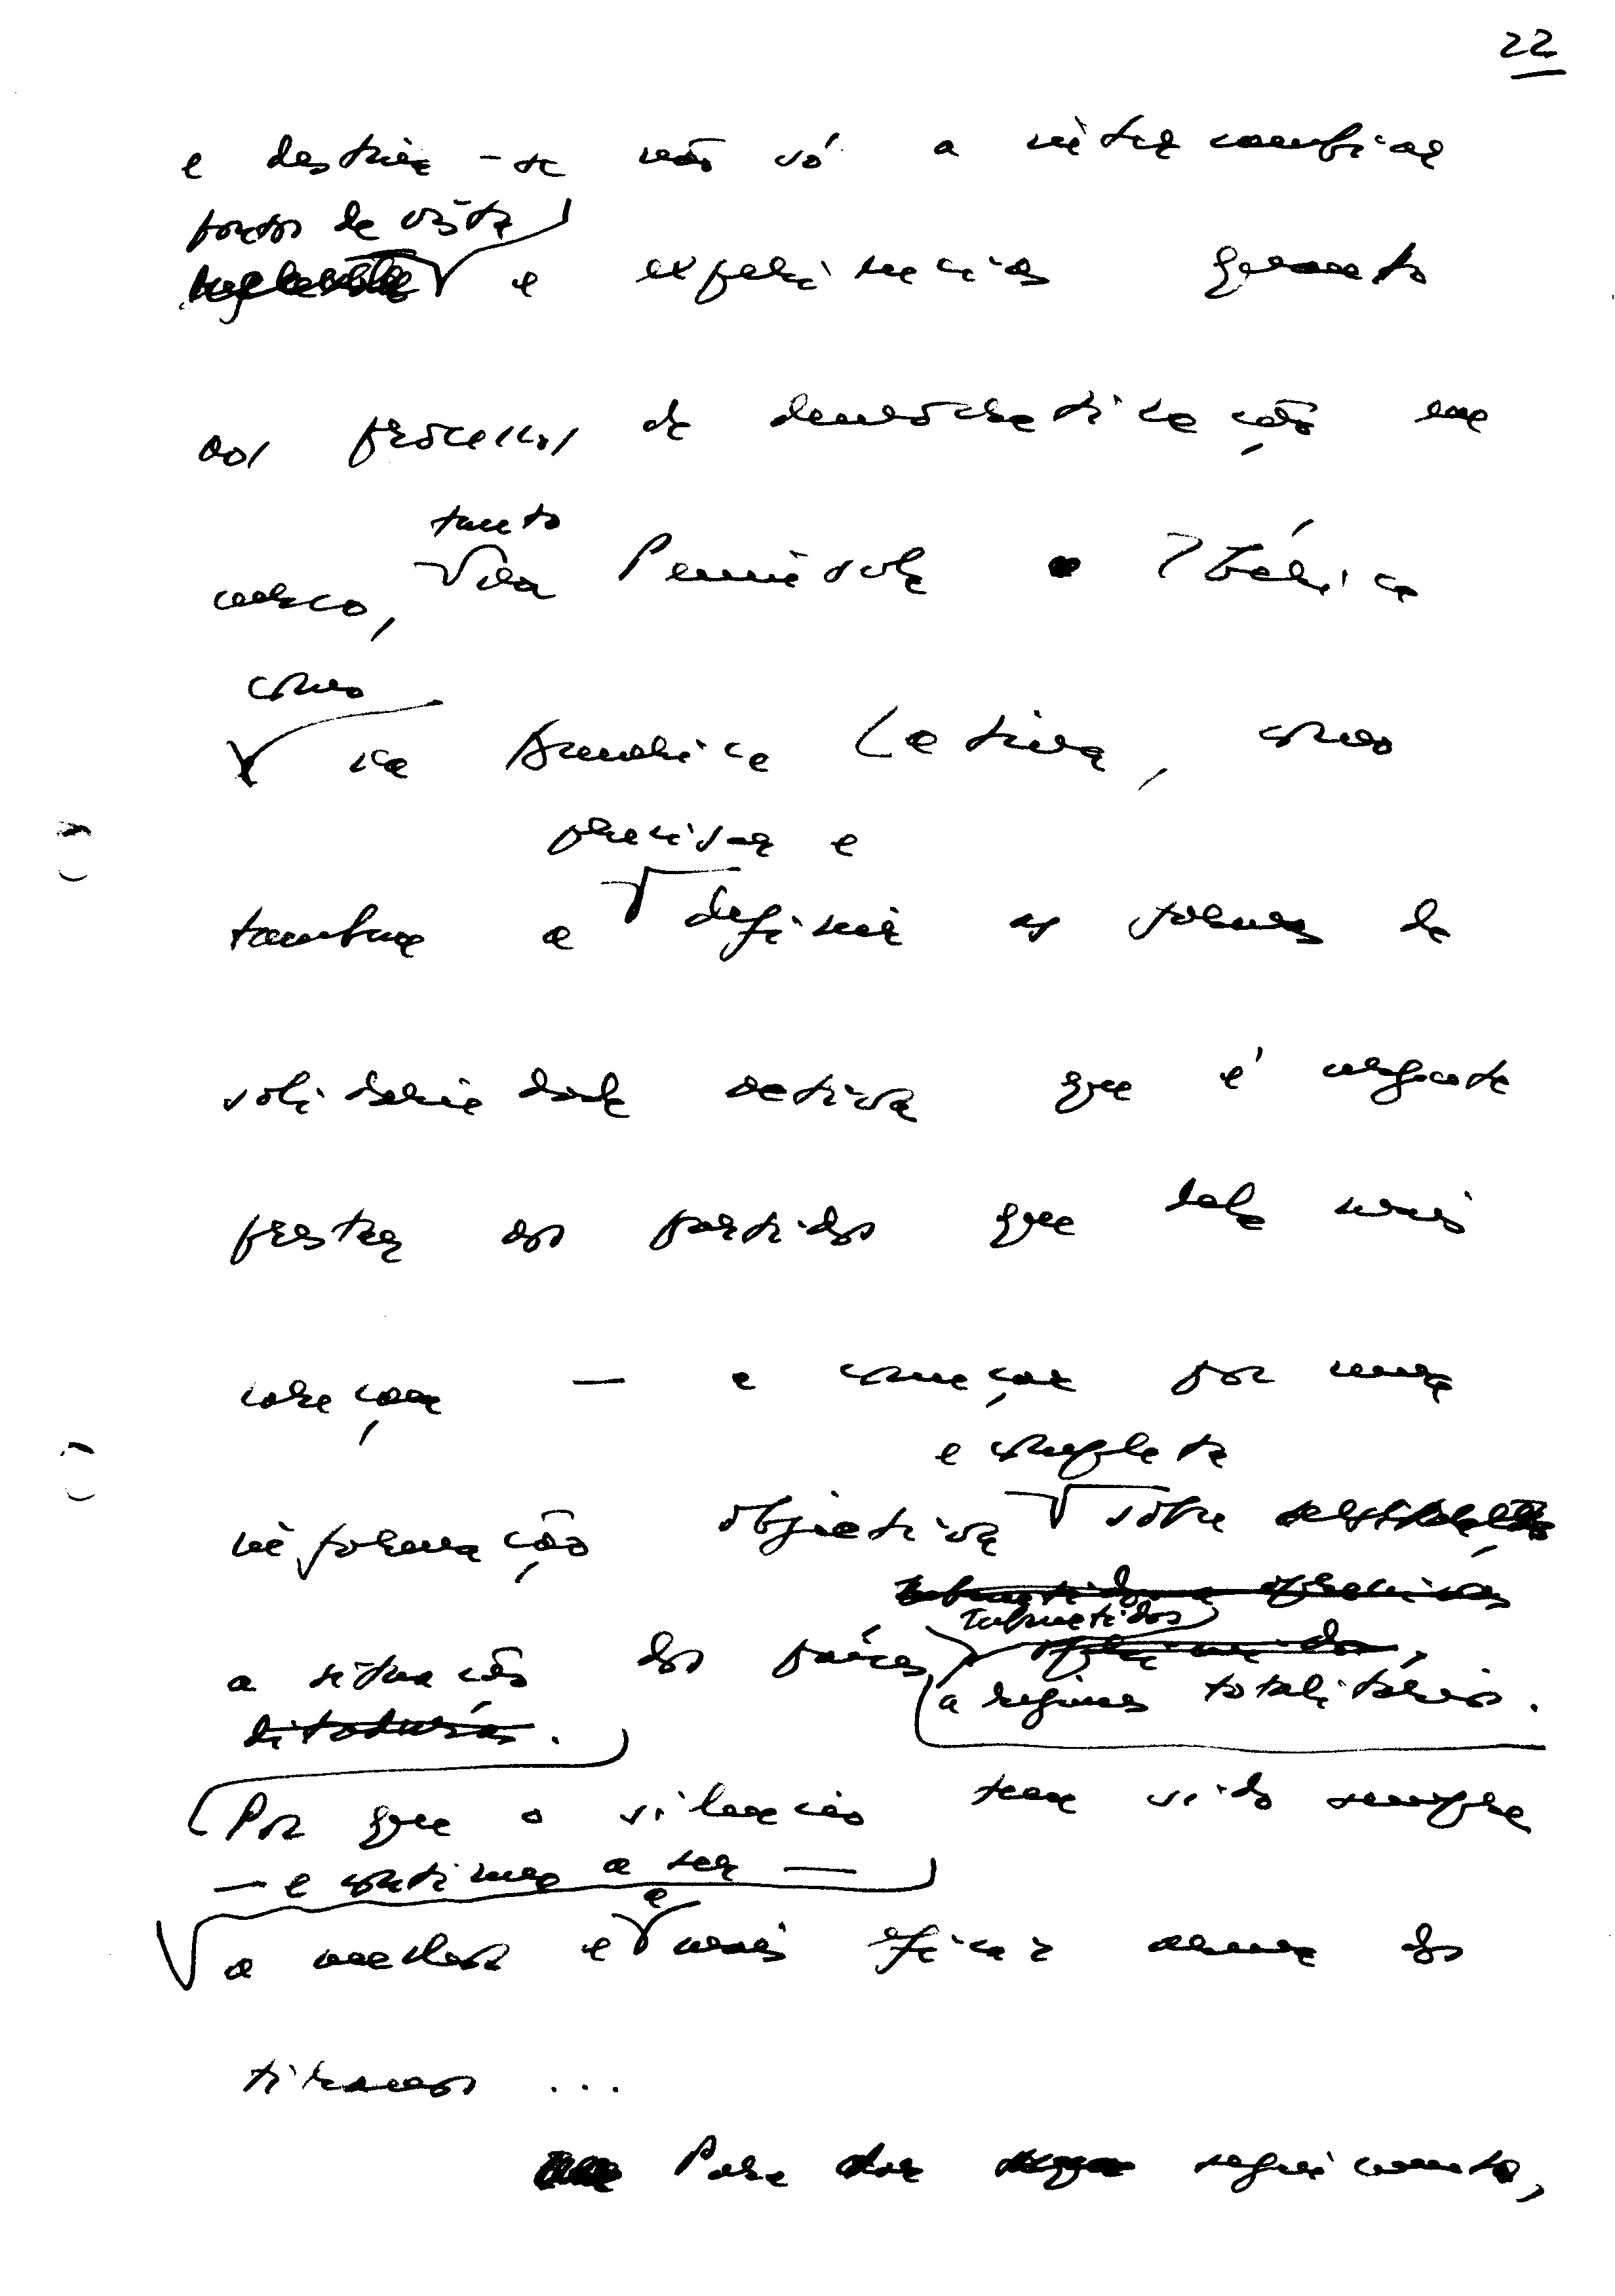 22
e destina-se não só a intercambiar
pontos de vista
e experiências quanto
aos processos de democratização em
tanto
marcha, na Península Ibérica
como
na América Latina, como
precisar e
também a definir as formas de
solidariedade activa que é urgente
prestar aos partidos que dela mais
careçam — e começar por uma
e completa
informação objectiva sobre
submetidos
a situação dos países
a regimes totalitários.
ditaduras.
Por que o silêncio tem sido sempre
— e continua a ser —
a
a melhor e mais eficaz arma dos
tiranos ...
Para dar seguimento,